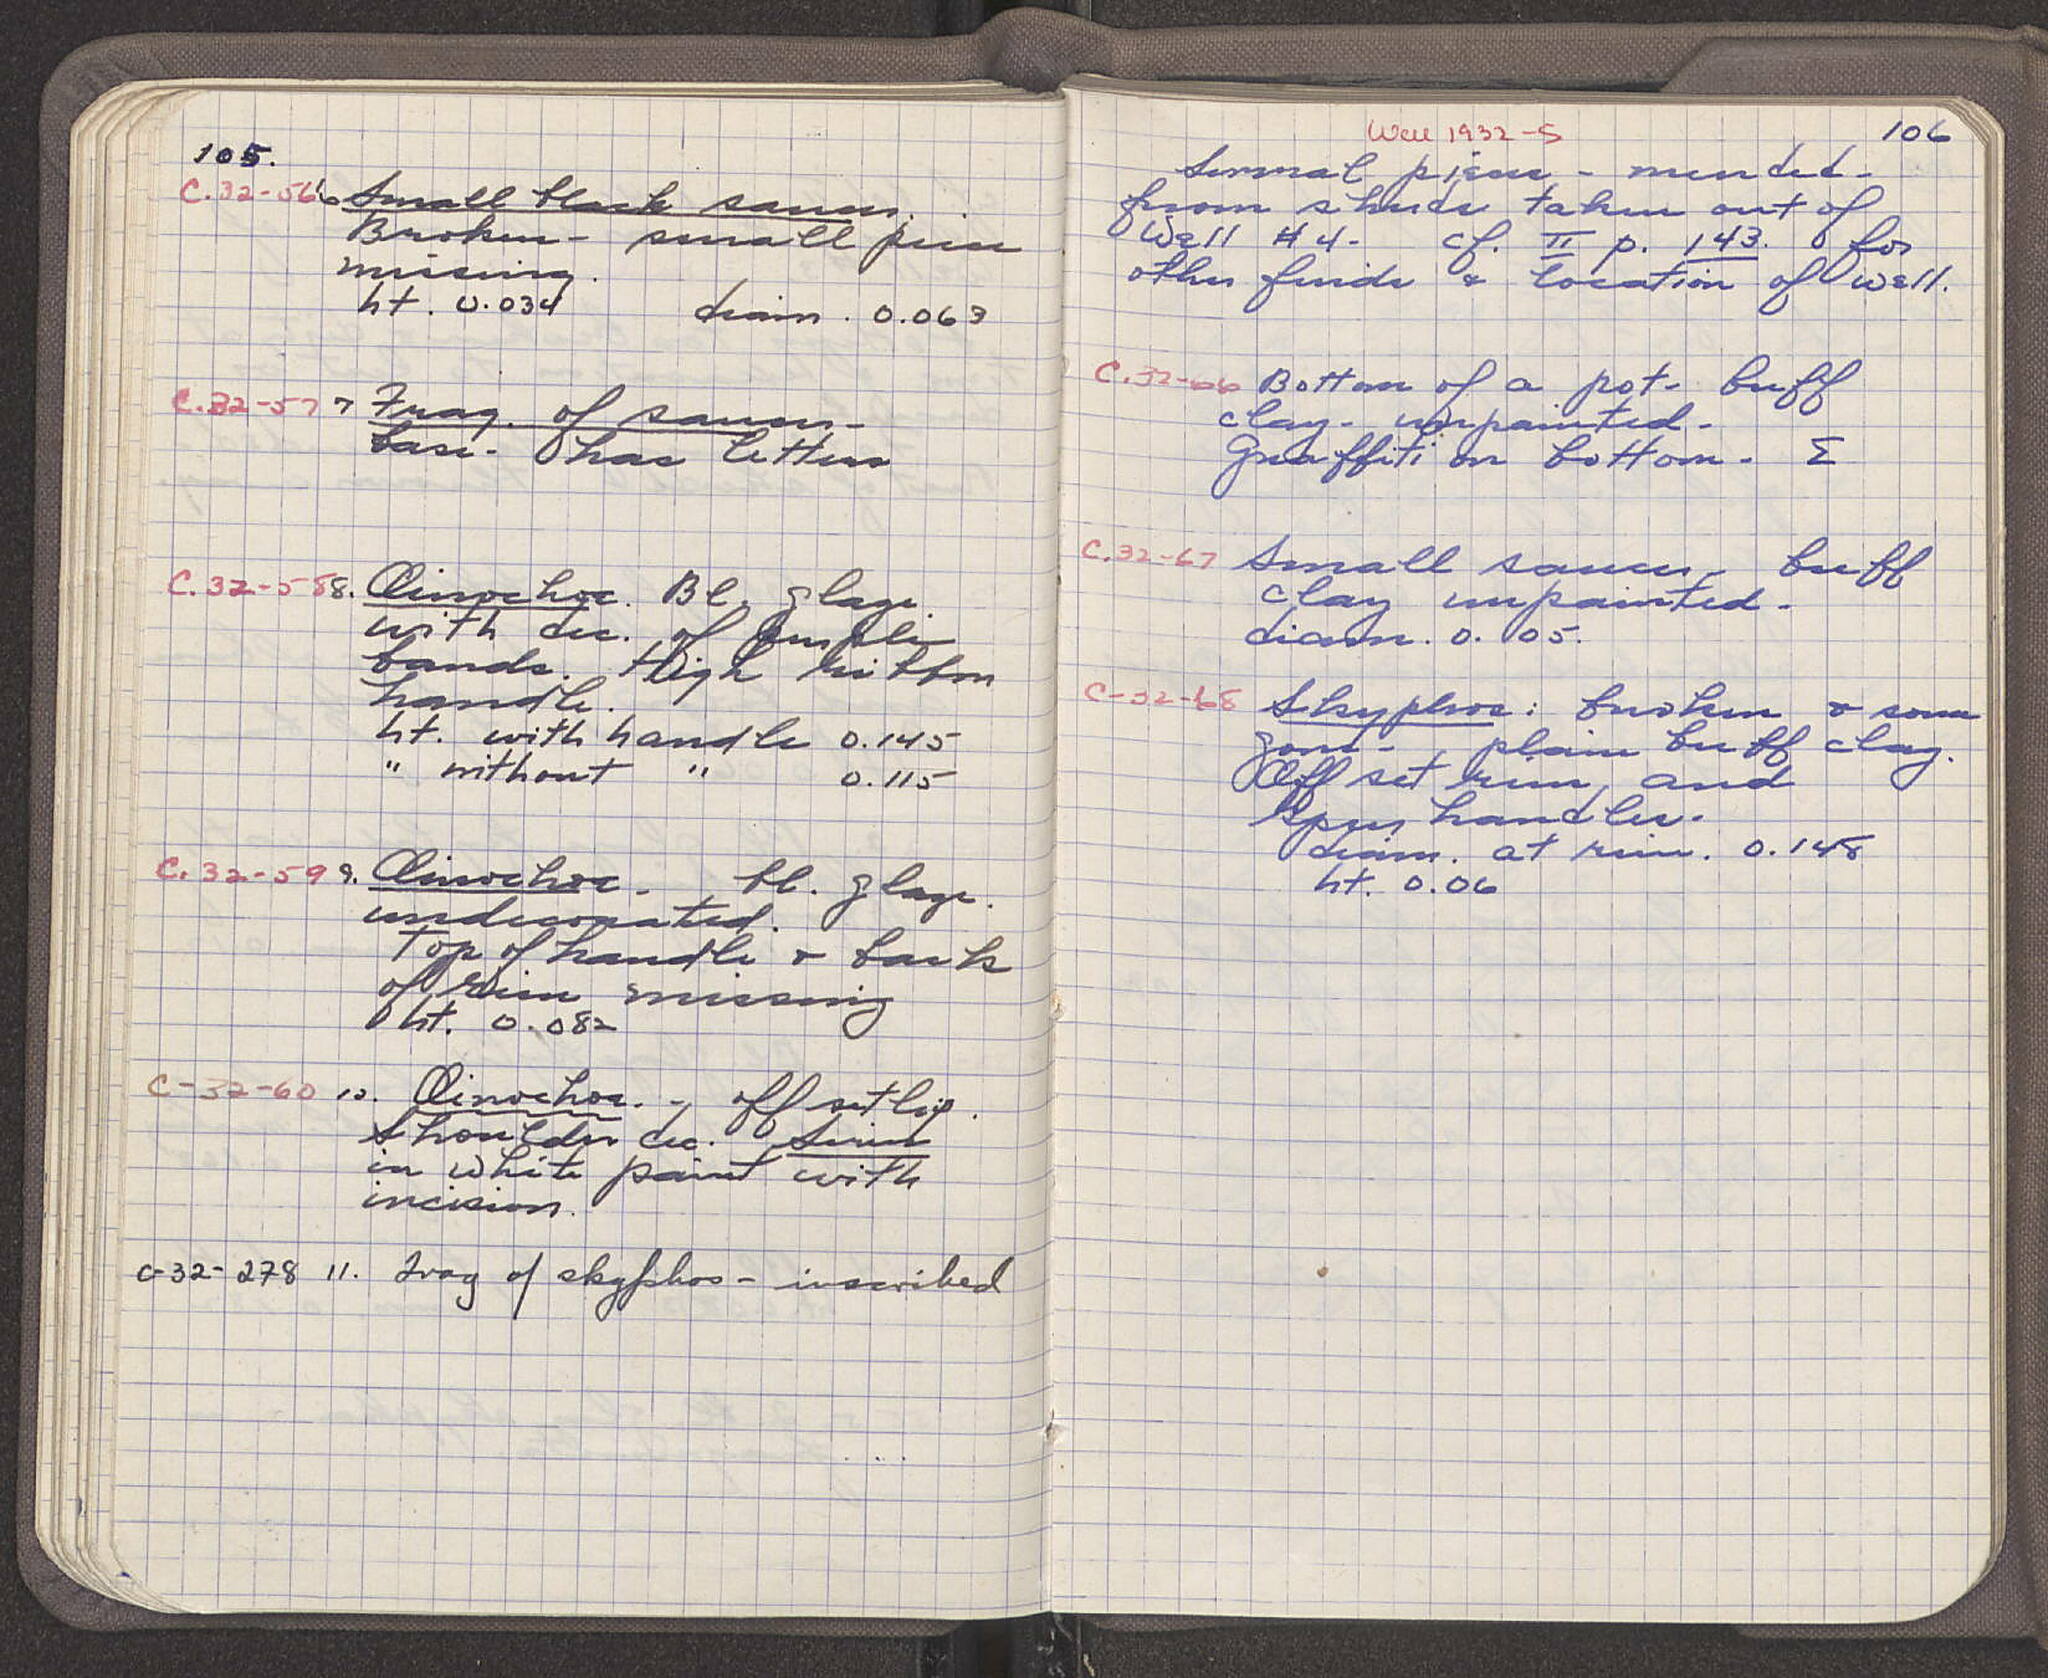 105.
C.32-56 6 Small black saucer.
Broken - small piece
missing.
ht. 0.034 diam. 0.063
C.32-57 7 Frag. of saucer -
base - has letters
C.32-58 8. Oinochoe. Bl. glaze
with dec. of purple
bands. High ribbon
handle.
ht. with handle 0.145
" without " 0.115
C.32-59 9. Oinochoe - bl. glaze.
undecorated.
Top of handle & back
of rim missing
ht. 0.082
C-32-60 10. Oinochoe. - offset lip.
Shoulder dec.
in white paint with
incision.
C-32-278 11. Frag of skyphos - inscribed
Well 1932-5
106
Several pieces - mended -
from sherds taken out of
Well #4. cf. II p. 143. for
other finds & location of well.
C.32-66 Bottom of a pot - buff
clay - unpainted -
Graffiti on bottom - Σ
C.32-67 Small saucer, buff
clay unpainted -
diam. 0.105.
C-32-68 Skyphos: broken & some
gone - plain buff clay.
Offset rim, and
spur handles -
diam. at rim. 0.148
ht. 0.06